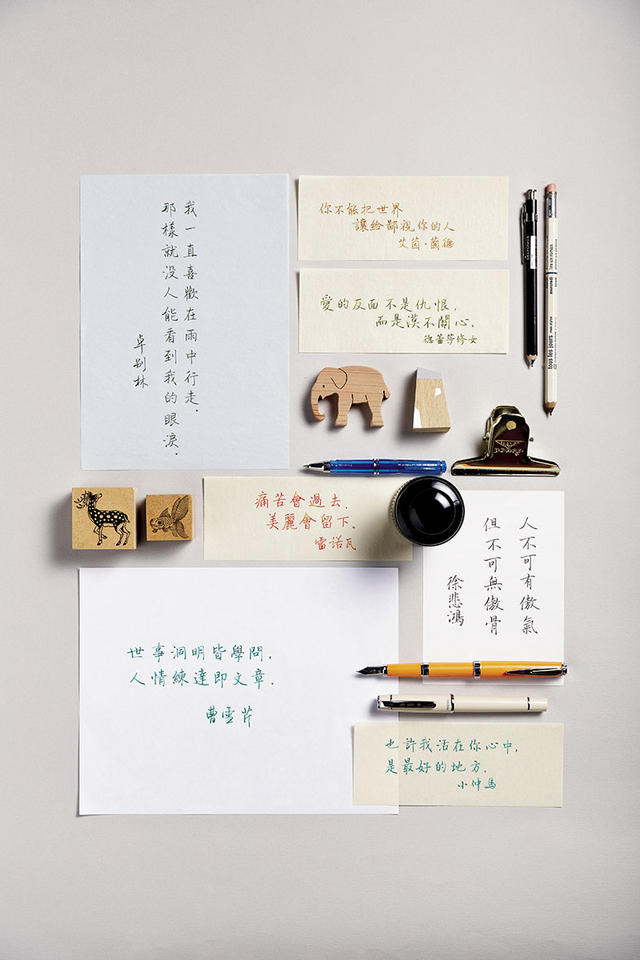 我一直喜歡在雨中行走．
那樣就没人能看到我的眼淚．
卓别林
你不能把世界
讓給鄙視你的人
艾茵·蘭德
愛的反面不是仇恨．
而是漠不關心．
德蕾莎修女
痛苦會過去．
美麗會留下．
雷諾瓦
人不可有傲氣
但不可無傲骨
徐悲鴻
世事洞明皆學問．
人情練達即文章．
曹雪芹
也許我活在你心中，
是最好的地方．
小仲馬
tous les jours